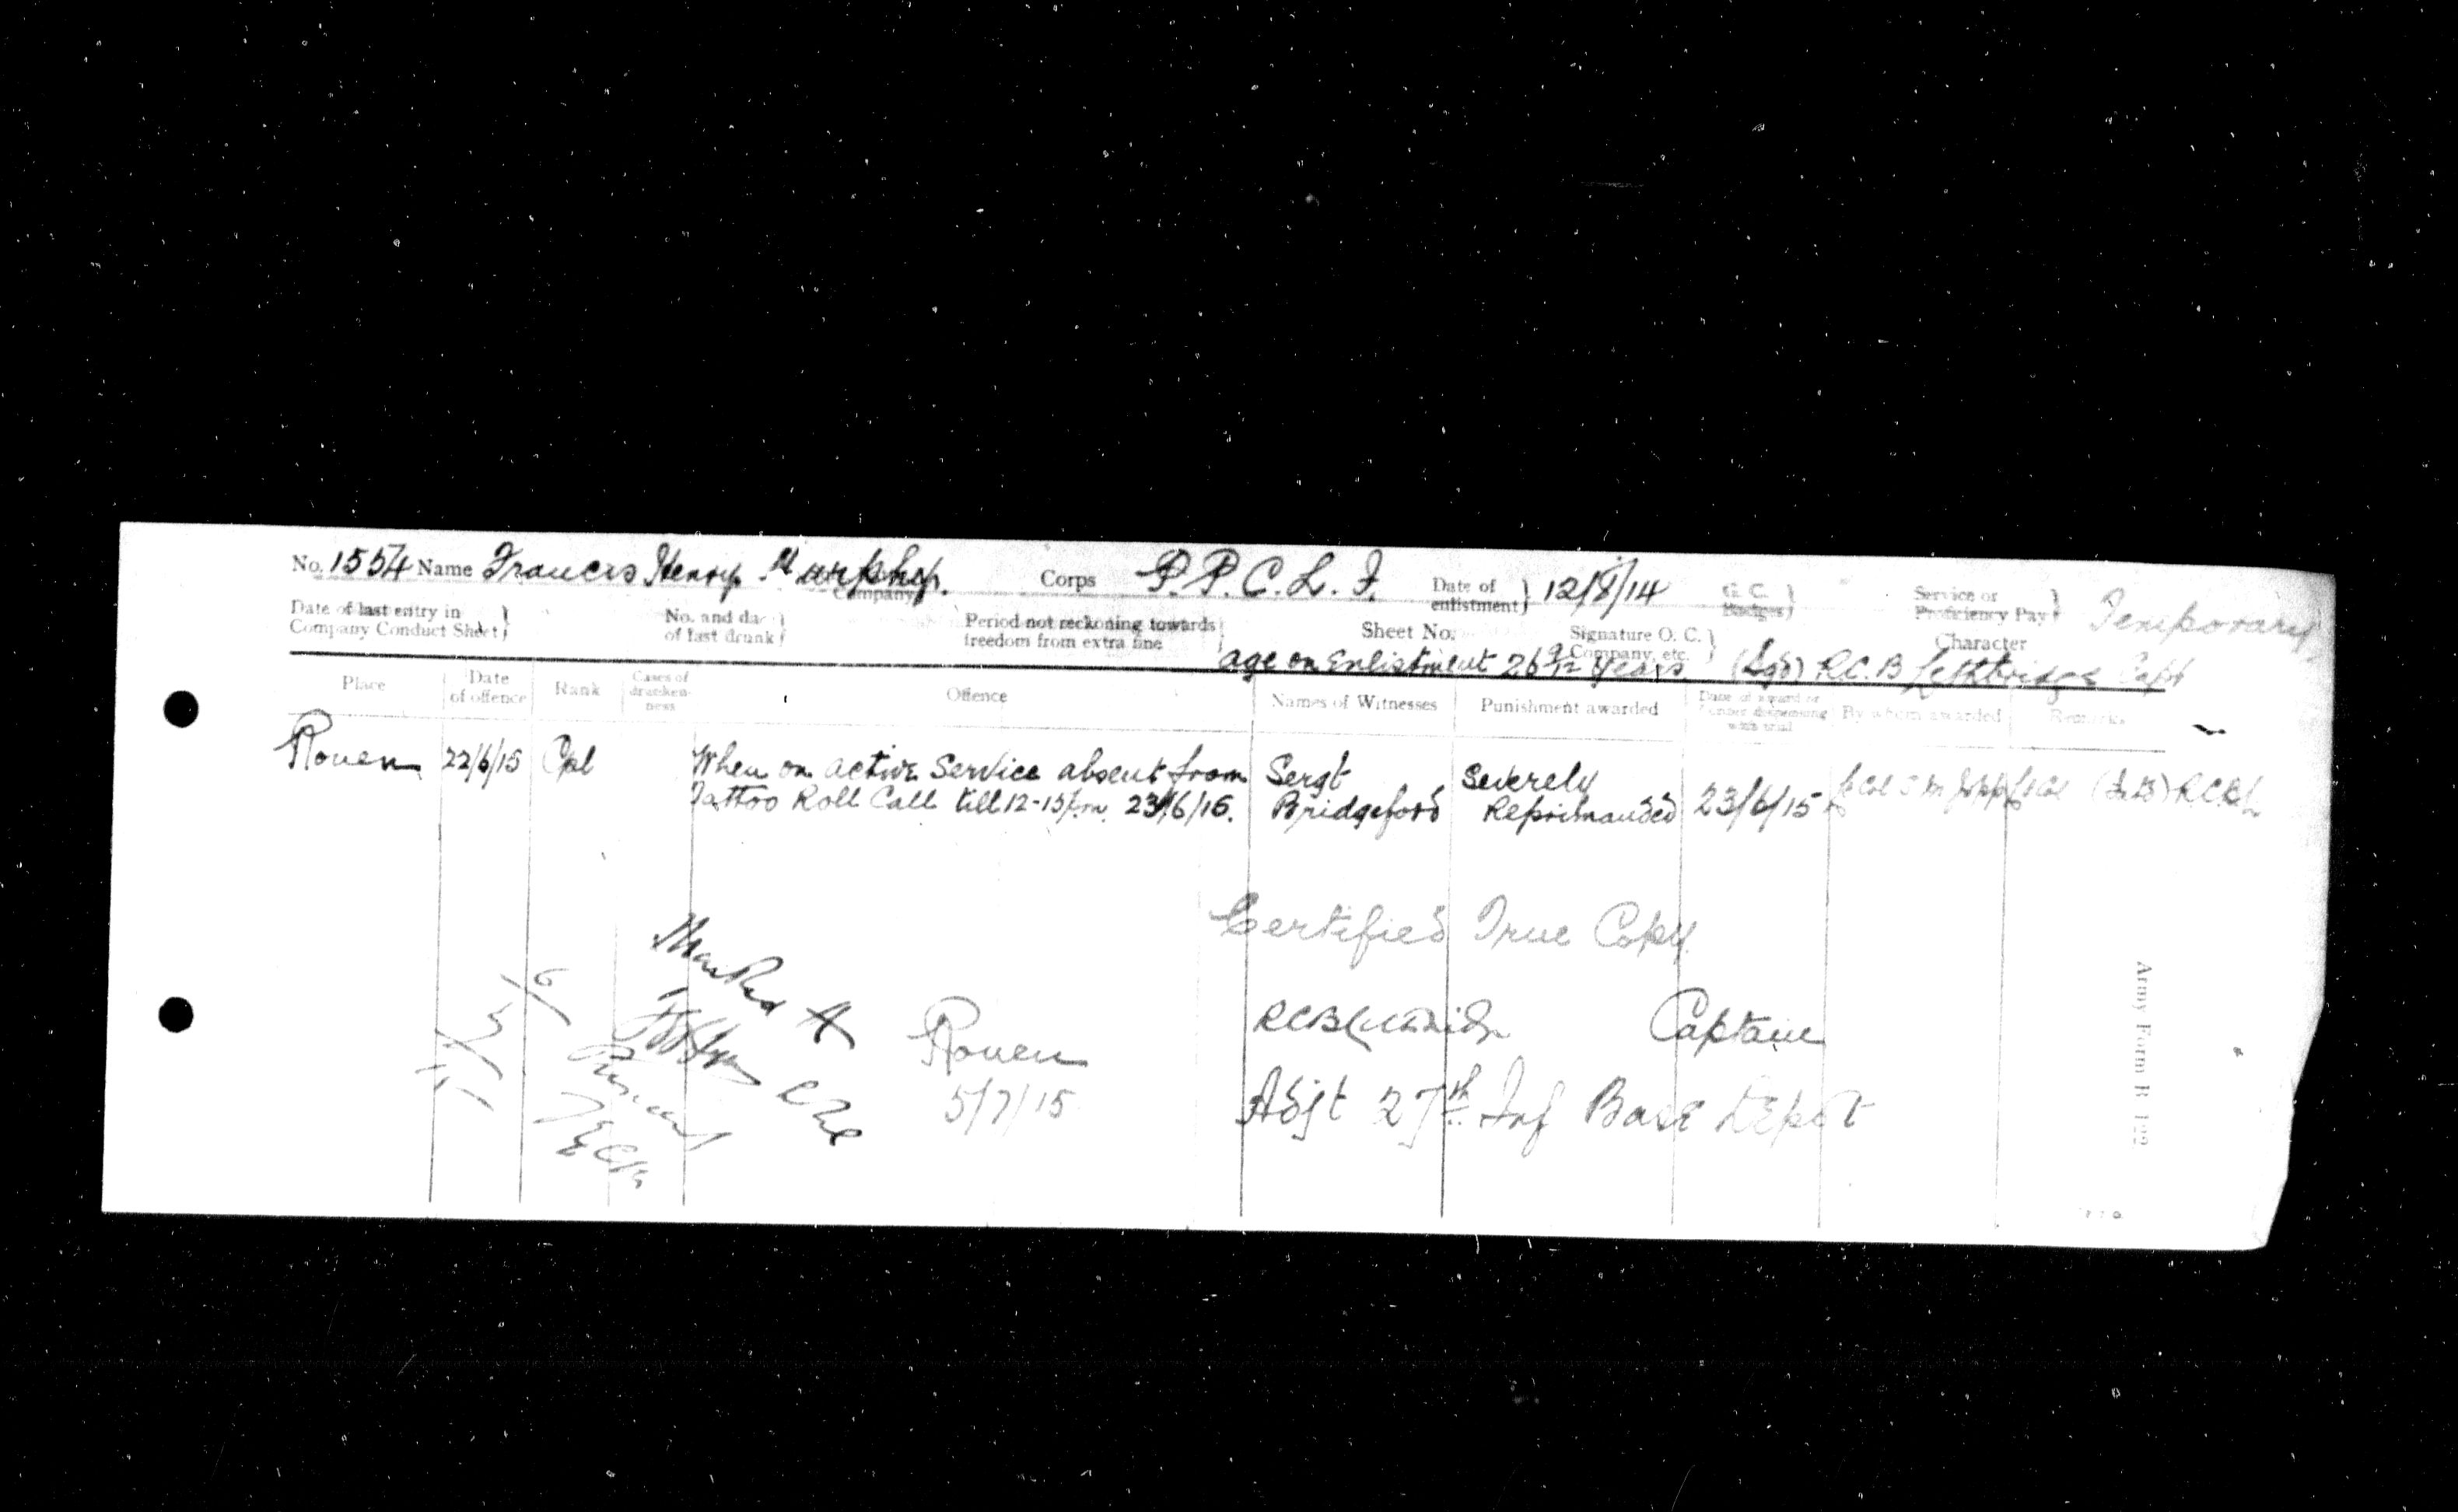 No. 1554 Name Francis Henry Murphy. Corps P.P.C.L.I. Date of enlistment } 12/8/14 G. C. Badges } Service or Proficiency Pay } Temporary
Company
Date of last entry in Company Conduct Sheet } No. and date of last drunk } Period not reckoning towards freedom from extra fine } Sheet No. Signature O. C. Company, etc. } Character
age on Enlistment 26 9/12 years. (Sgd) R.C.B Lethbridge Capt
Place Date of offence Rank Cases of drunkenness Offence Names of Witnesses Punishment awarded Date of award or order dispensing with trial By whom awarded Remarks
Rouen 22/6/15 Cpl When on active Service absent from Sergt Severely
Tattoo Roll Call till 12-15 p.m. 23/6/15. Bridgeford Reprimanded 23/6/15 Lt Col (Sgd) R.C.B.L
Certified True Copy
Marked A
Rouen
5/7/15
Captain
Adjt 27th Inf Base Depot
Army Form B 122